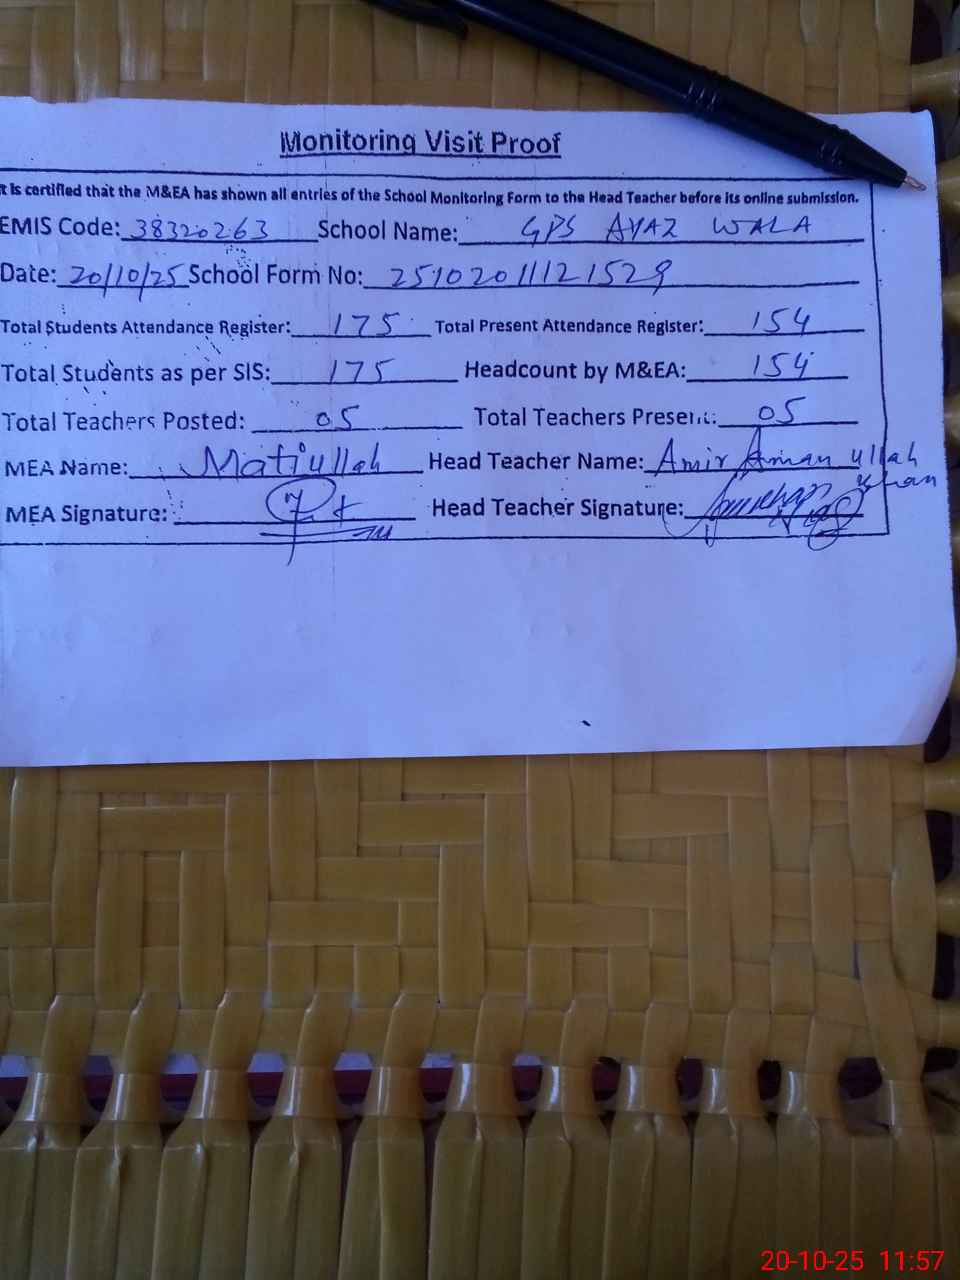 Monitoring Visit Proof
t is certified that the M&EA has shown all entries of the School Monitoring Form to the Head Teacher before its online submission.
EMIS Code: 38320263 School Name: GPS AYAZ WALA
Date: 20/10/25 School Form No: 25102011121529
Total Students Attendance Register: 175 Total Present Attendance Register: 154
Total Students as per SIS: 175 Headcount by M&EA: 154
Total Teachers Posted: 05 Total Teachers Present: 05
MEA Name: Matiullah Head Teacher Name: Amir Aman ullah khan
MEA Signature: Head Teacher Signature:
20-10-25 11:57